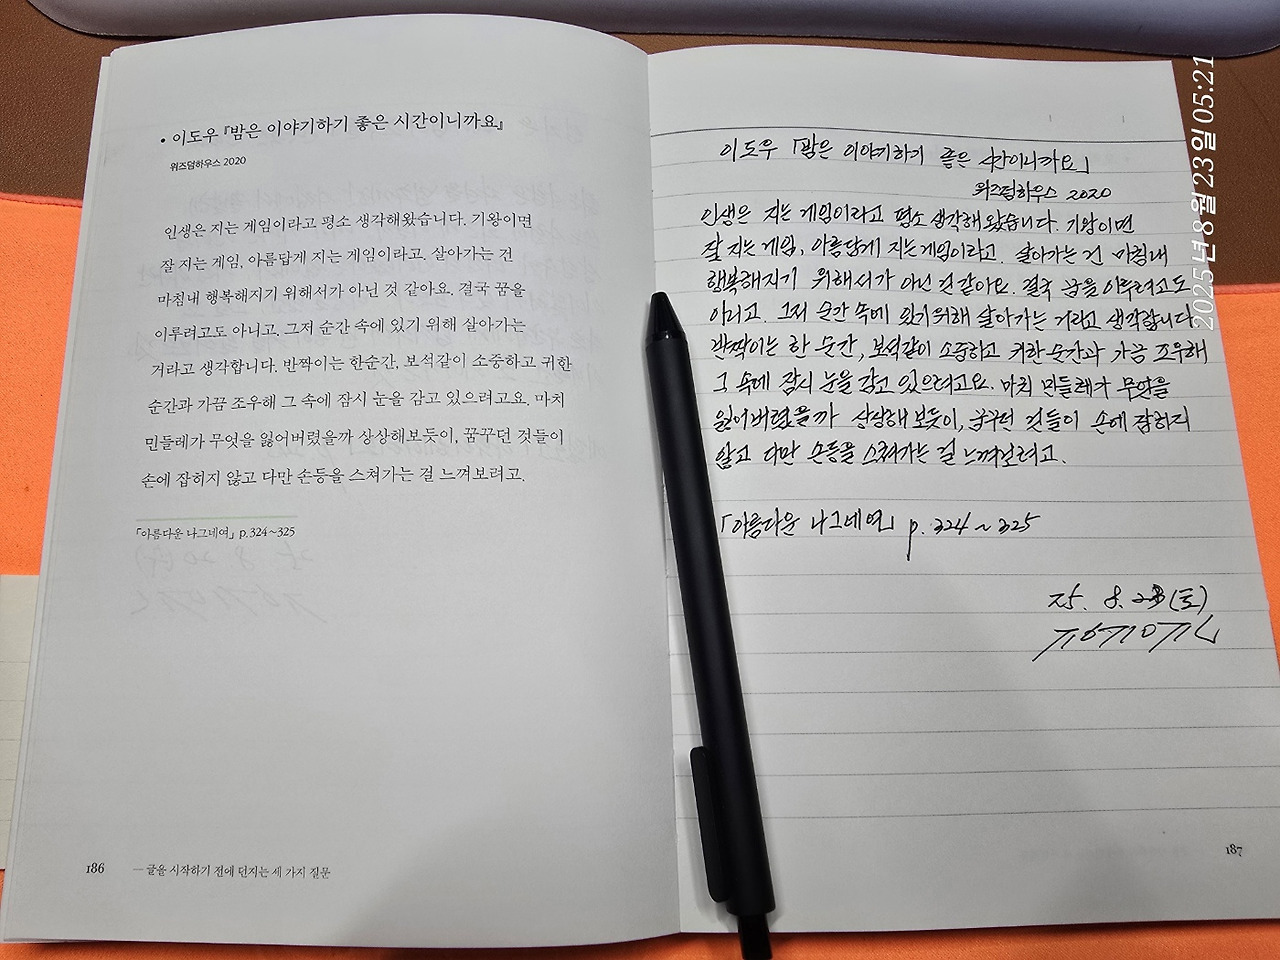 • 이도우 『밤은 이야기하기 좋은 시간이니까요』
위즈덤하우스 2020
인생은 지는 게임이라고 평소 생각해왔습니다. 기왕이면
잘 지는 게임, 아름답게 지는 게임이라고. 살아가는 건
마침내 행복해지기 위해서가 아닌 것 같아요. 결국 꿈을
이루려고도 아니고, 그저 순간 속에 있기 위해 살아가는
거라고 생각합니다. 반짝이는 한순간, 보석같이 소중하고 귀한
순간과 가끔 조우해 그 속에 잠시 눈을 감고 있으려고요. 마치
민들레가 무엇을 잃어버렸을까 상상해보듯이, 꿈꾸던 것들이
손에 잡히지 않고 다만 손등을 스쳐가는 걸 느껴보려고.
「아름다운 나그네여」 p.324~325
186 — 글을 시작하기 전에 던지는 세 가지 질문
이도우 「밤은 이야기하기 좋은 시간이니까요」
위즈덤하우스 2020
인생은 지는 게임이라고 평소 생각해왔습니다. 기왕이면
잘 지는 게임, 아름답게 지는 게임이라고. 살아가는 건 마침내
행복해지기 위해서가 아닌 것 같아요. 결국 꿈을 이루려고도
아니고. 그저 순간 속에 있기 위해 살아가는 거라고 생각합니다.
반짝이는 한 순간, 보석같이 소중하고 귀한 순간과 가끔 조우해
그 속에 잠시 눈을 감고 있으려고요. 마치 민들레가 무엇을
잃어버렸을까 상상해 보듯이, 꿈꾸던 것들이 손에 잡히지
않고 다만 손등을 스쳐가는 걸 느껴보려고.
「아름다운 나그네여」 p.324~325
25. 8. 23(토)
187
2025년 8월 23일 05:21